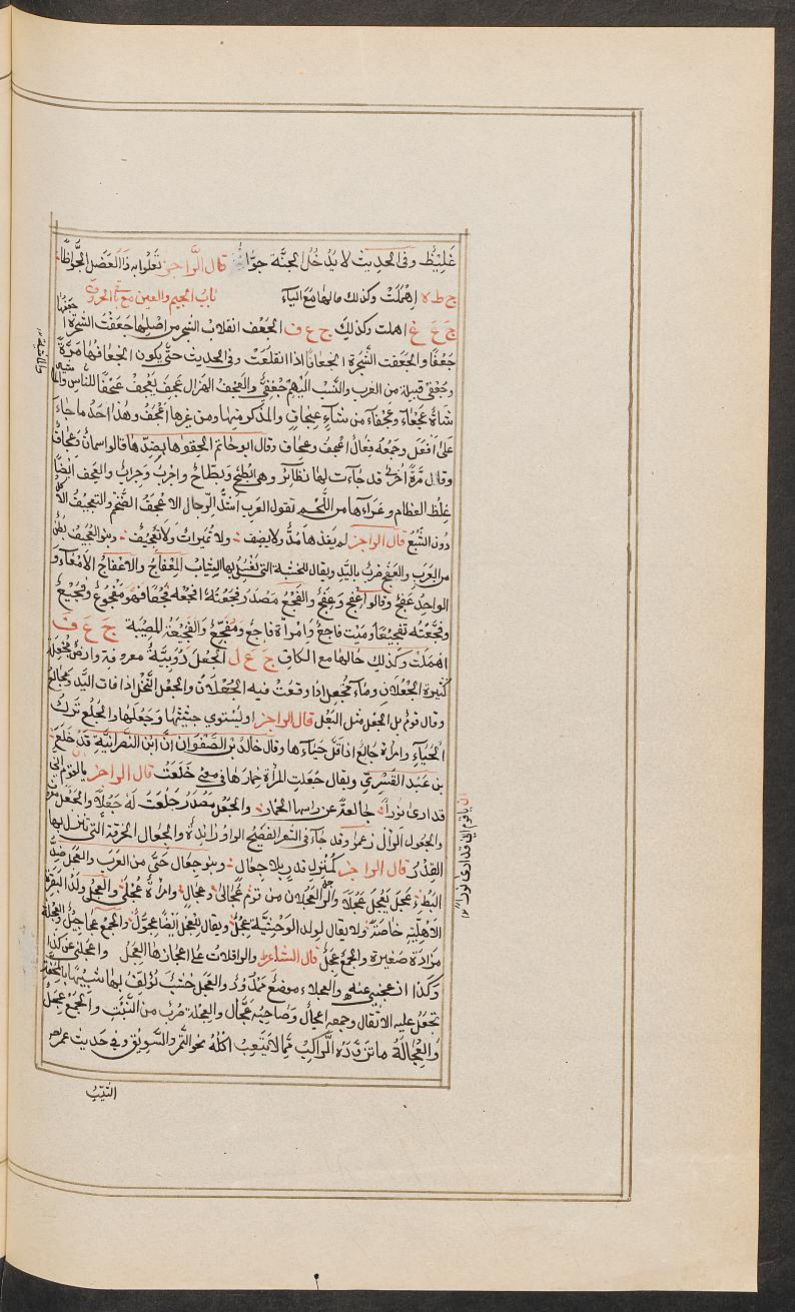 غليظ وفى الحديث لا يدخل الجنة جوّاظ قال الراجز تعلوا به ذا العضل الجوّاظا
ج ظ ه اهملت وكذلك حالها مع الياء باب الجيم والعين مع الحروف
ج ع غ اهملت وكذلك ج ع ف الجعف انقلاب الشجر من اصلها جعفت الشجرة اجعفها
جعفا وانجعفت الشجرة انجعافا اذا انقلعت وفى الحديث حتى يكون انجعافها مرّة
وجعفى قبيلة من العرب والنسب اليهم جعفىّ والعجف الهزال عجف يعجف عجفا للناس والماشية
شاة عجفاء من شاء عجاف والمذكر منها ومن غيرها اعجف وهذا احد ما جاء
على افعل وجمعه فعال اعجف وعجاف وقال ابو حاتم الحقوها بضدها قالوا سمان وعجاف
وقال مرّة اخرى قد جاءت لها نظائر وهى ابطح وبطاح واجرب وجراب والعجف ايضا
غلظ العظام وعراءها من اللحم تقول العرب اشدّ الرجال الاعجف الضخم والتعجيف الاكل
دون الشبع قال الراجز لم يغذها مدّ ولا نصيف ولا تميرات ولا تعجيف وبنو العجيف بطن
من العرب والعفج ضرب باليد ويقال للخشبة التى تغسل بها الثياب المعفاج والاعفاج الامعاء و
الواحد عفج وقالوا عفج وعفج والفجع مصدر فجعته افجعه فجعا فهو مفجوع وفجيع
وفجّعته تفجيعا وميت فاجع وامرأة فاجع ومفجّع والفجيعة المصيبة ج ع ق
اهملت وكذلك حالها مع الكاف ج ع ل الجعل دويبّة معروفة وارض مجعلة
كثيرة الجعلان وماء مجعل اذا وقعت فيه الجعلان والجعل النخل اذا فات اليد
وقال قوم بل الجعل مثل البعل قال الراجز او يستوى جثيثها وجعلها والجلع ترك
الحياء وامرأة جالع اذا قلّ حياءها وقال خالد بن الصفوان انّ ابن النصرانية قد خلع
بن عبد القسرى ويقال جعلت المرأة خمارها فى معنى خلعت قال الراجز يا قوم انى
قد ارى نوارا جالعة عن راسها الخمارا والجعل مصدر جعلت له جعلا والجعل معروف
والجعول الرأل زعموا وقد جاء فى الشعر الفصيح الواو زائدة والجعال الخرقة التى تنزل بها
القدر قال الراجز كمنزل قدر بلا جعال وبنو جعال حىّ من العرب والعجل ضدّ
البطء عجل يعجل عجلا والرجل العجلان من قوم عجالى وعجال وامرأة عجلى والعجل ولد البقرة
الاهلية خاصّة ولا يقال لولد الوحشية عجل ويقال للعجل ايضا عجّول والجمع عجاجيل والعجلة
مزادة صغيرة والجمع عجل قال الشاعر والرافلات على اعجازها العجل واعجلنى عن كذا
وكذا ازعجنى عنه والعجلاء موضع ممدود والعجل خشب يؤلف بها شبيها بالمحفّة
تجعل عليه الاثقال وجمعه اعجال وصاحبه عجّال والعجلة ضرب من النبت والجمع عجل
والعجالة ما تزوّده الراكب ممّا لا يتعب اكله نحو التمر والسويق وفى حديث عمر رض
الثيّب
يا قوم انى قد ارى نوارا